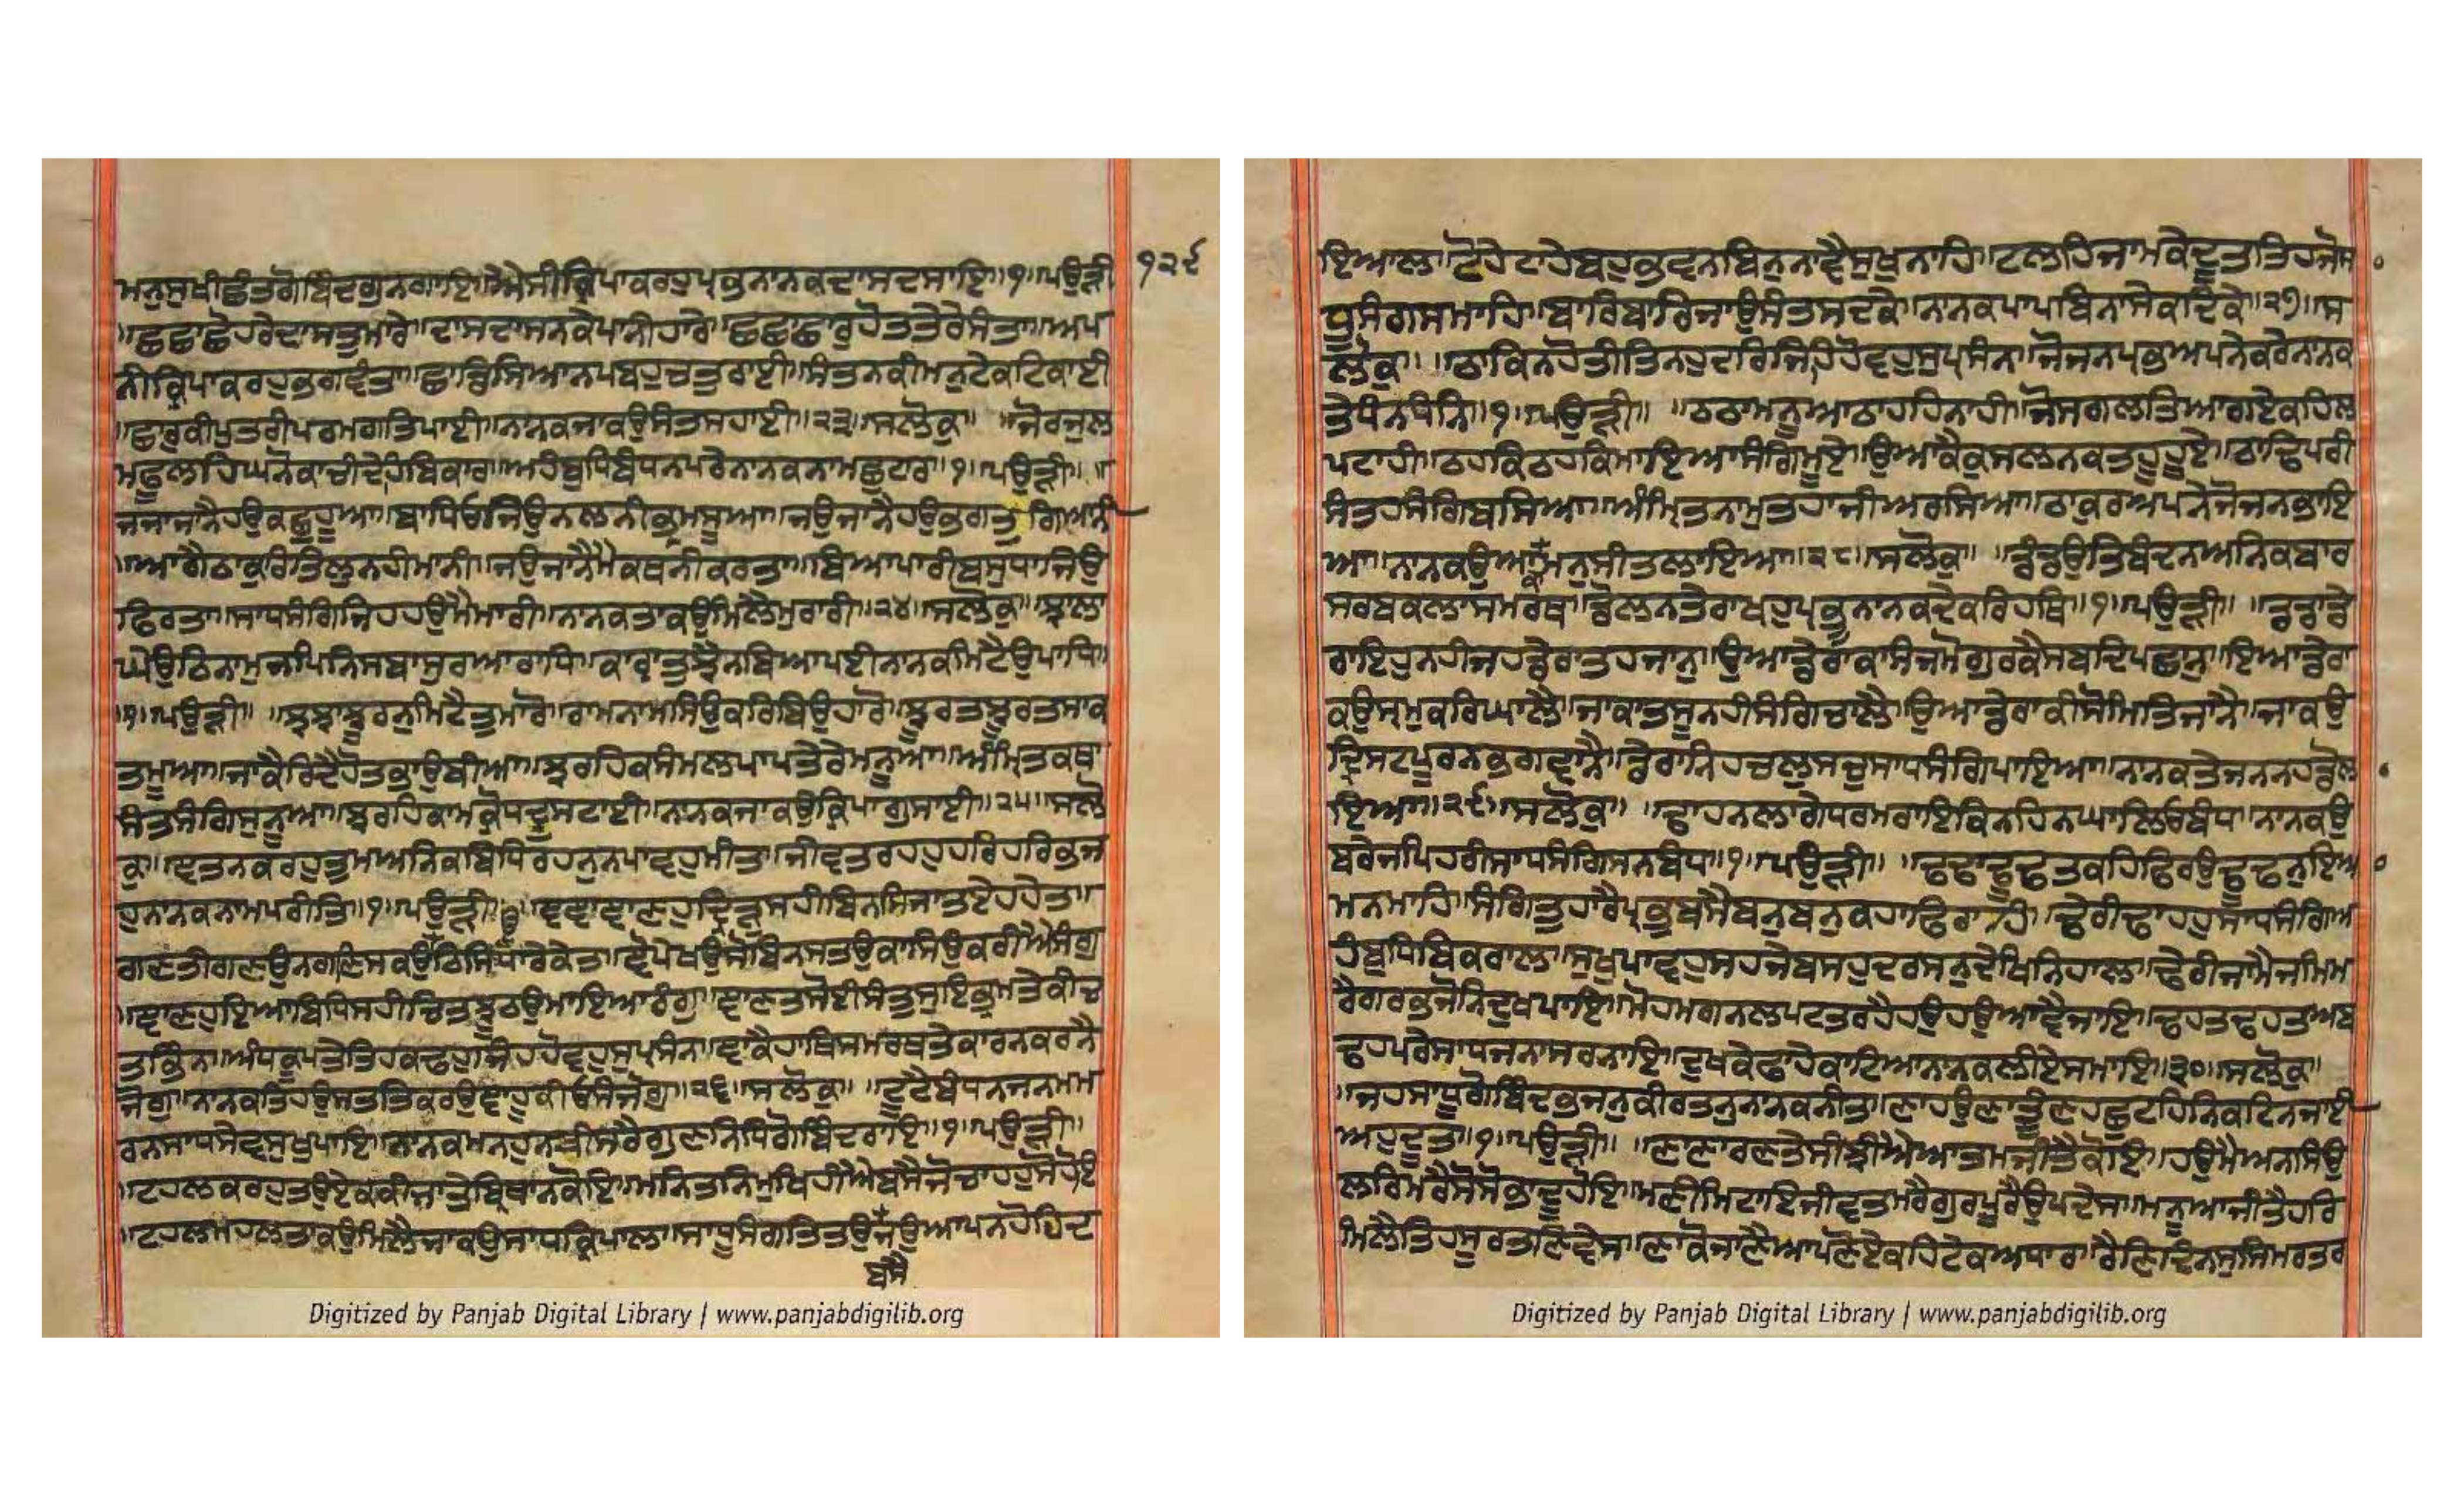 ਮਨੁਮੁਖੀਛੰਤਗੋਬਿੰਦਗੁਨਗਾਇ॥ਐਸੀਕ੍ਰਿਪਾਕਰਹੁਪ੍ਰਭਨਾਨਕਦਾਸਦਸਾਇ॥੧॥ਪਉੜੀ ੧੨੯
॥ਛਛਾਛੋਹਰੇਦਾਸਤੁਮਾਰੇ॥ਦਾਸਦਾਸਨਕੇਪਾਨੀਹਾਰੇ॥ਛਛਛਾਰੁਹੋਤਤੇਰੇਸੰਤਾ॥ਅਪ
ਨੀਕ੍ਰਿਪਾਕਰਹੁਭਗਵੰਤਾ॥ਛਾਡਿਸਿਆਨਪਬਹੁਚਤੁਰਾਈ॥ਸੰਤਨਕੀਮਨੁਟੇਕਟਿਕਾਈ
॥ਛਾਰੁਕੀਪੁਤਰੀਪਰਮਗਤਿਪਾਈ॥ਨਾਨਕਜਾਕਉਸੰਤਸਹਾਈ॥੨੩॥ਸਲੋਕੁ॥ ॥ਜੋਰਜੁਲ
ਮਫੂਲਹਿਘਨੋਕਾਚੀਦੇਹਬਿਕਾਰ॥ਅਹੰਬੁਧਿਬੰਧਨਪਰੇਨਾਨਕਨਾਮਛੁਟਾਰ॥੧॥ਪਉੜੀ॥ ॥
ਜਜਾਜਾਨੈਹਉਕਛੁਹੂਆ॥ਬਾਧਿਓਜਿਉਨਲਨੀਭ੍ਰਮਸੂਆ॥ਜਉਜਾਨੈਹਉਭਗਤੁਗਿਆਨੀ
॥ਆਗੈਠਾਕੁਰਿਤਿਲੁਨਹੀਮਾਨੀ॥ਜਉਜਾਨੈਮੈਕਥਨੀਕਰਤਾ॥ਬਿਆਪਾਰੀਬਸੁਧਾਜਿਉ
ਫਿਰਤਾ॥ਸਾਧਸੰਗਿਜਿਹਹਉਮੈਮਾਰੀ॥ਨਾਨਕਤਾਕਉਮਿਲੇਮੁਰਾਰੀ॥੨੪॥ਸਲੋਕੁ॥ਝਾਲਾ
ਘੇਉਠਿਨਾਮੁਜਪਿਨਿਸਬਾਸੁਰਆਰਾਧਿ॥ਕਾਰਾਤੁਝੈਨਬਿਆਪਈਨਾਨਕਮਿਟੈਉਪਾਧਿ॥
॥੧॥ਪਉੜੀ॥ ॥ਝਝਾਝੂਰਨੁਮਿਟੈਤੁਮਾਰੋ॥ਰਾਮਨਾਮਸਿਉਕਰਿਬਿਉਹਾਰੋ॥ਝੂਰਤਝੂਰਤਸਾਕ
ਤਮੂਆ॥ਜਾਕੈਰਿਦੈਹੋਤਭਾਉਬੀਆ॥ਝਰਹਿਕਸੰਮਲਪਾਪਤੇਰੇਮਨੂਆ॥ਅੰਮ੍ਰਿਤਕਥਾ
ਸੰਤਸੰਗਿਸੁਨੂਆ॥ਝਰਹਿਕਾਮਕ੍ਰੋਧਦ੍ਰੁਸਟਾਈ॥ਨਾਨਕਜਾਕਉਕ੍ਰਿਪਾਗੁਸਾਈ॥੨੫॥ਸਲੋ
ਕੁ॥ਞਤਨਕਰਹੁਤੁਮਅਨਿਕਬਿਧਿਰਹਨੁਨਪਾਵਹੁਮੀਤ॥ਜੀਵਤਰਹਹੁਹਰਿਹਰਿਭਜ
ਹੁਨਾਨਕਨਾਮਪਰੀਤਿ॥੧॥ਪਉੜੀ॥ ॥ਞੰਞਾਞਾਣਹੁਦ੍ਰਿੜੁਸਹੀਬਿਨਸਿਜਾਤਏਹਹੇਤ॥
ਗਣਤੀਗਣਉਨਗਣਿਸਕਉਊਠਿਸਿਧਾਰੇਕੇਤ॥ਞੋਪੇਖਉਸੋਬਿਨਸਤਉਕਾਸਿਉਕਰੀਐਸੰਗੁ
॥ਞਾਣਹੁਇਆਬਿਧਿਸਹੀਚਿਤਝੂਠਉਮਾਇਆਰੰਗੁ॥ਞਾਣਤਸੋਈਸੰਤੁਸੁਇਭ੍ਰਮਤੇਕੀਚਿ
ਤਭਿੰਨ॥ਅੰਧਕੂਪਤੇਤਿਹਕਢਹੁਜਿਹਹੋਵਹੁਸੁਪ੍ਰਸੰਨ॥ਞਾਕੈਹਾਥਿਸਮਰਥਤੇਕਾਰਨਕਰਨੈ
ਜੋਗੁ॥ਨਾਨਕਤਿਹਉਸਤਤਿਕਰਉਞਾਹੂਕੀਓਸੰਜੋਗੁ॥੨੬॥ਸਲੋਕੁ॥ ॥ਟੂਟੇਬੰਧਨਜਨਮਮ
ਰਨਸਾਧਸੇਵਸੁਖੁਪਾਇ॥ਨਾਨਕਮਨਹੁਨਬੀਸਰੈਗੁਣਨਿਧਿਗੋਬਿੰਦਰਾਇ॥੧॥ਪਉੜੀ॥
॥ਟਹਲਕਰਹੁਤਉਏਕਕੀਜਾਤੇਬ੍ਰਿਥਾਨਕੋਇ॥ਮਨਿਤਨਿਮੁਖਿਹੀਐਬਸੈਜੋਚਾਹਹੁਸੋਹੋਇ
॥ਟਹਲਮਹਲਤਾਕਉਮਿਲੈਜਾਕਉਸਾਧਕ੍ਰਿਪਾਲ॥ਸਾਧੂਸੰਗਤਿਤਉਜਉਆਪਨਹੋਹਿਦ
ਬਸੈ
ਇਆਲ॥ਟੋਹੇਟਾਹੇਬਹੁਭਵਨਬਿਨੁਨਾਵੈਸੁਖੁਨਾਹਿ॥ਟਲਹਿਜਾਮਕੇਦੂਤਤਿਹਜੋਸਾ
ਧੂਸੰਗਿਸਮਾਹਿ॥ਬਾਰਿਬਾਰਿਜਾਉਸੰਤਸਦਕੇ॥ਨਾਨਕਪਾਪਬਿਨਾਸੇਕਦਿਕੇ॥੨੭॥ਸ
ਲੋਕੁ॥ ॥ਠਾਕਿਨਹੋਤੀਤਿਨਹੁਦਰਿਜਿਹਹੋਵਹੁਸੁਪ੍ਰਸੰਨ॥ਜੋਜਨਪ੍ਰਭਅਪਨੇਕਰੇਨਾਨਕ
ਤੇਧੰਨਧੰਨਿ॥੧॥ਪਉੜੀ॥ ॥ਠਠਾਮਨੂਆਠਾਹਹਿਨਾਹੀ॥ਜੋਸਗਲਤਿਆਗਿਏਕਹਿਲ
ਪਟਾਹੀ॥ਠਹਕਿਠਹਕਿਮਾਇਆਸੰਗਿਮੂਏ॥ਉਆਕੈਕੁਸਲਨਕਤਹੂਹੂਏ॥ਠਾਂਢਿਪਰੀ
ਸੰਤਹਸੰਗਿਬਸਿਆ॥ਅੰਮ੍ਰਿਤਨਾਮੁਤਹਾਜੀਅਰਸਿਆ॥ਠਾਕੁਰਅਪਨੇਜੋਜਨਭਾਇ
ਆ॥ਨਾਨਕਉਆਕਾਮਨੁਸੀਤਲਾਇਆ॥੨੮॥ਸਲੋਕੁ॥ ॥ਡੰਡਉਤਿਬੰਦਨਅਨਿਕਬਾਰ
ਸਰਬਕਲਾਸਮਰਥ॥ਡੋਲਨਤੇਰਾਖਹੁਪ੍ਰਭੂਨਾਨਕਦੇਕਰਿਹਥਿ॥੧॥ਪਉੜੀ॥ ॥ਡਡਾਡੇ
ਰਾਇਹੁਨਹੀਜਹਡੇਰਾਤਹਜਾਨੁ॥ਉਆਡੇਰਾਕਾਸੰਜਮੋਗੁਰਕੈਸਬਦਿਪਛਾਨੁ॥ਇਆਡੇਰਾ
ਕਉਸ੍ਰਮੁਕਰਿਘਾਲੈ॥ਜਾਕਾਤਸੂਨਹੀਸੰਗਿਚਾਲੈ॥ਉਆਡੇਰਾਕੀਸੋਮਿਤਿਜਾਨੈ॥ਜਾਕਉ
ਦ੍ਰਿਸਟਿਪੂਰਨਭਗਵਾਨੈ॥ਡੇਰਾਨਿਹਚਲੁਸਚੁਸਾਧਸੰਗਿਪਾਇਆ॥ਨਾਨਕਤੇਜਨਨਹਡੋਲਾ
ਇਆ॥੨੯॥ਸਲੋਕੁ॥ ॥ਢਾਹਨਲਾਗੇਧਰਮਰਾਇਕਿਨਹਿਨਘਾਲਿਓਬੰਧ॥ਨਾਨਕਉ
ਬਰੇਜਪਿਹਰੀਸਾਧਸੰਗਿਸਨਬੰਧ॥੧॥ਪਉੜੀ॥ ॥ਢਢਾਢੂਢਤਕਹਫਿਰਉਢੂਢਨੁਇਆ
ਮਨਮਾਹਿ॥ਸੰਗਿਤੁਹਾਰੈਪ੍ਰਭੁਬਸੈਬਨੁਬਨੁਕਹਾਫਿਰਾਹਿ॥ਢੇਰੀਢਾਹਹੁਸਾਧਸੰਗਿਅ
ਹੰਬੁਧਿਬਿਕਰਾਲ॥ਸੁਖੁਪਾਵਹੁਸਹਜੇਬਸਹੁਦਰਸਨੁਦੇਖਿਨਿਹਾਲ॥ਢੇਰੀਜਾਮੈਜਮਿਮ
ਰੈਗਰਭਜੋਨਿਦੁਖਪਾਇ॥ਮੋਹਮਗਨਲਪਟਤਰਹੈਹਉਹਉਆਵੈਜਾਇ॥ਢਹਤਢਹਤਅਬ
ਢਹਪਰੇਸਾਧਜਨਾਸਰਨਾਇ॥ਦੁਖਕੇਫਾਹੇਕਾਟਿਆਨਾਨਕਲੀਏਸਮਾਇ॥੩੦॥ਸਲੋਕੁ॥
॥ਜਹਸਾਧੂਗੋਬਿੰਦਭਜਨੁਕੀਰਤਨੁਨਾਨਕਨੀਤ॥ਣਾਹਉਣਾਤੂੰਣਹਛੁਟਹਿਨਿਕਟਿਨਜਾਈ
ਅਹੁਦੂਤ॥੧॥ਪਉੜੀ॥ ॥ਣਾਣਾਰਣਤੇਸੀਝੀਐਆਤਮਜੀਤੈਕੋਇ॥ਹਉਮੈਅਨਸਿਉ
ਲਰਿਮਰੈਸੋਸੋਭਾਦੂਹੋਇ॥ਮਣੀਮਿਟਾਇਜੀਵਤਮਰੈਗੁਰਪੂਰੈਉਪਦੇਸ॥ਮਨੂਆਜੀਤੈਹਰਿ
ਮਿਲੈਤਿਹਸੂਰਤਣਿਵੇਸ॥ਣਾਕੋਜਾਣੈਆਪਣੋਏਕਹਿਟੇਕਅਧਾਰ॥ਰੈਣਿਦਿਨਸੁਸਿਮਰਤਰ
Digitized by Panjab Digital Library | www.panjabdigilib.org
Digitized by Panjab Digital Library | www.panjabdigilib.org